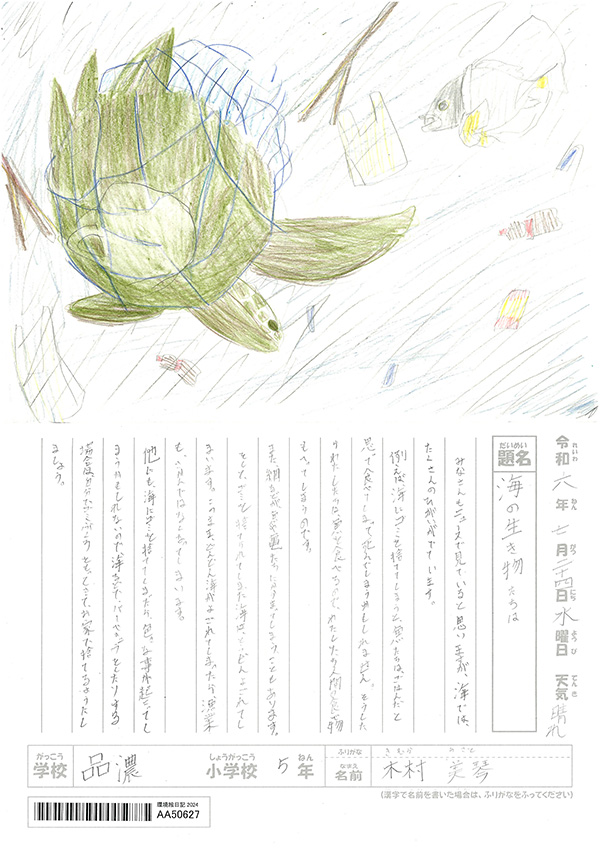 令和六年七月二十四日水曜日 天気晴れ
れいわ ねん がつ にち ようび てんき
だいめい
題名
海の生き物たちは
みなさんもニュースで見ていると思いますが、海では、
たくさんのひがいがでています。
例えば、海にゴミを捨ててしまうと、魚たちは、ごはんだと
思って食べてしまって死んでしまうかもしれません。もうした
わたしたちは、魚を食べるので、わたしたち人間も食べ物
もへってしまうのです。
また、網などが魚たちにからまってしまうこともあります。
そして、ゴミを捨てられてしまった海は、どんどんよごれてし
まいます。このまま、どんどん海がよごれてしまったら、漁業
も、ほとんどなくなってしまいます。
他にも、海にゴミを捨ててしまったら、色々な事が起こってし
まうかもしれないので、海などでバーベキューをしたりする
場合は、自分でゴミぶくろをもってきて、お家で捨てるようにし
ましょう。
がっこう
学校
品濃
しょうがっこう
小学校
5
ねん
年
ふりがな
きむら みこと
なまえ
名前
木村 美琴
(漢字で名前を書いた場合は、ふりがなをふってください)
環境絵日記 2024
AA50627